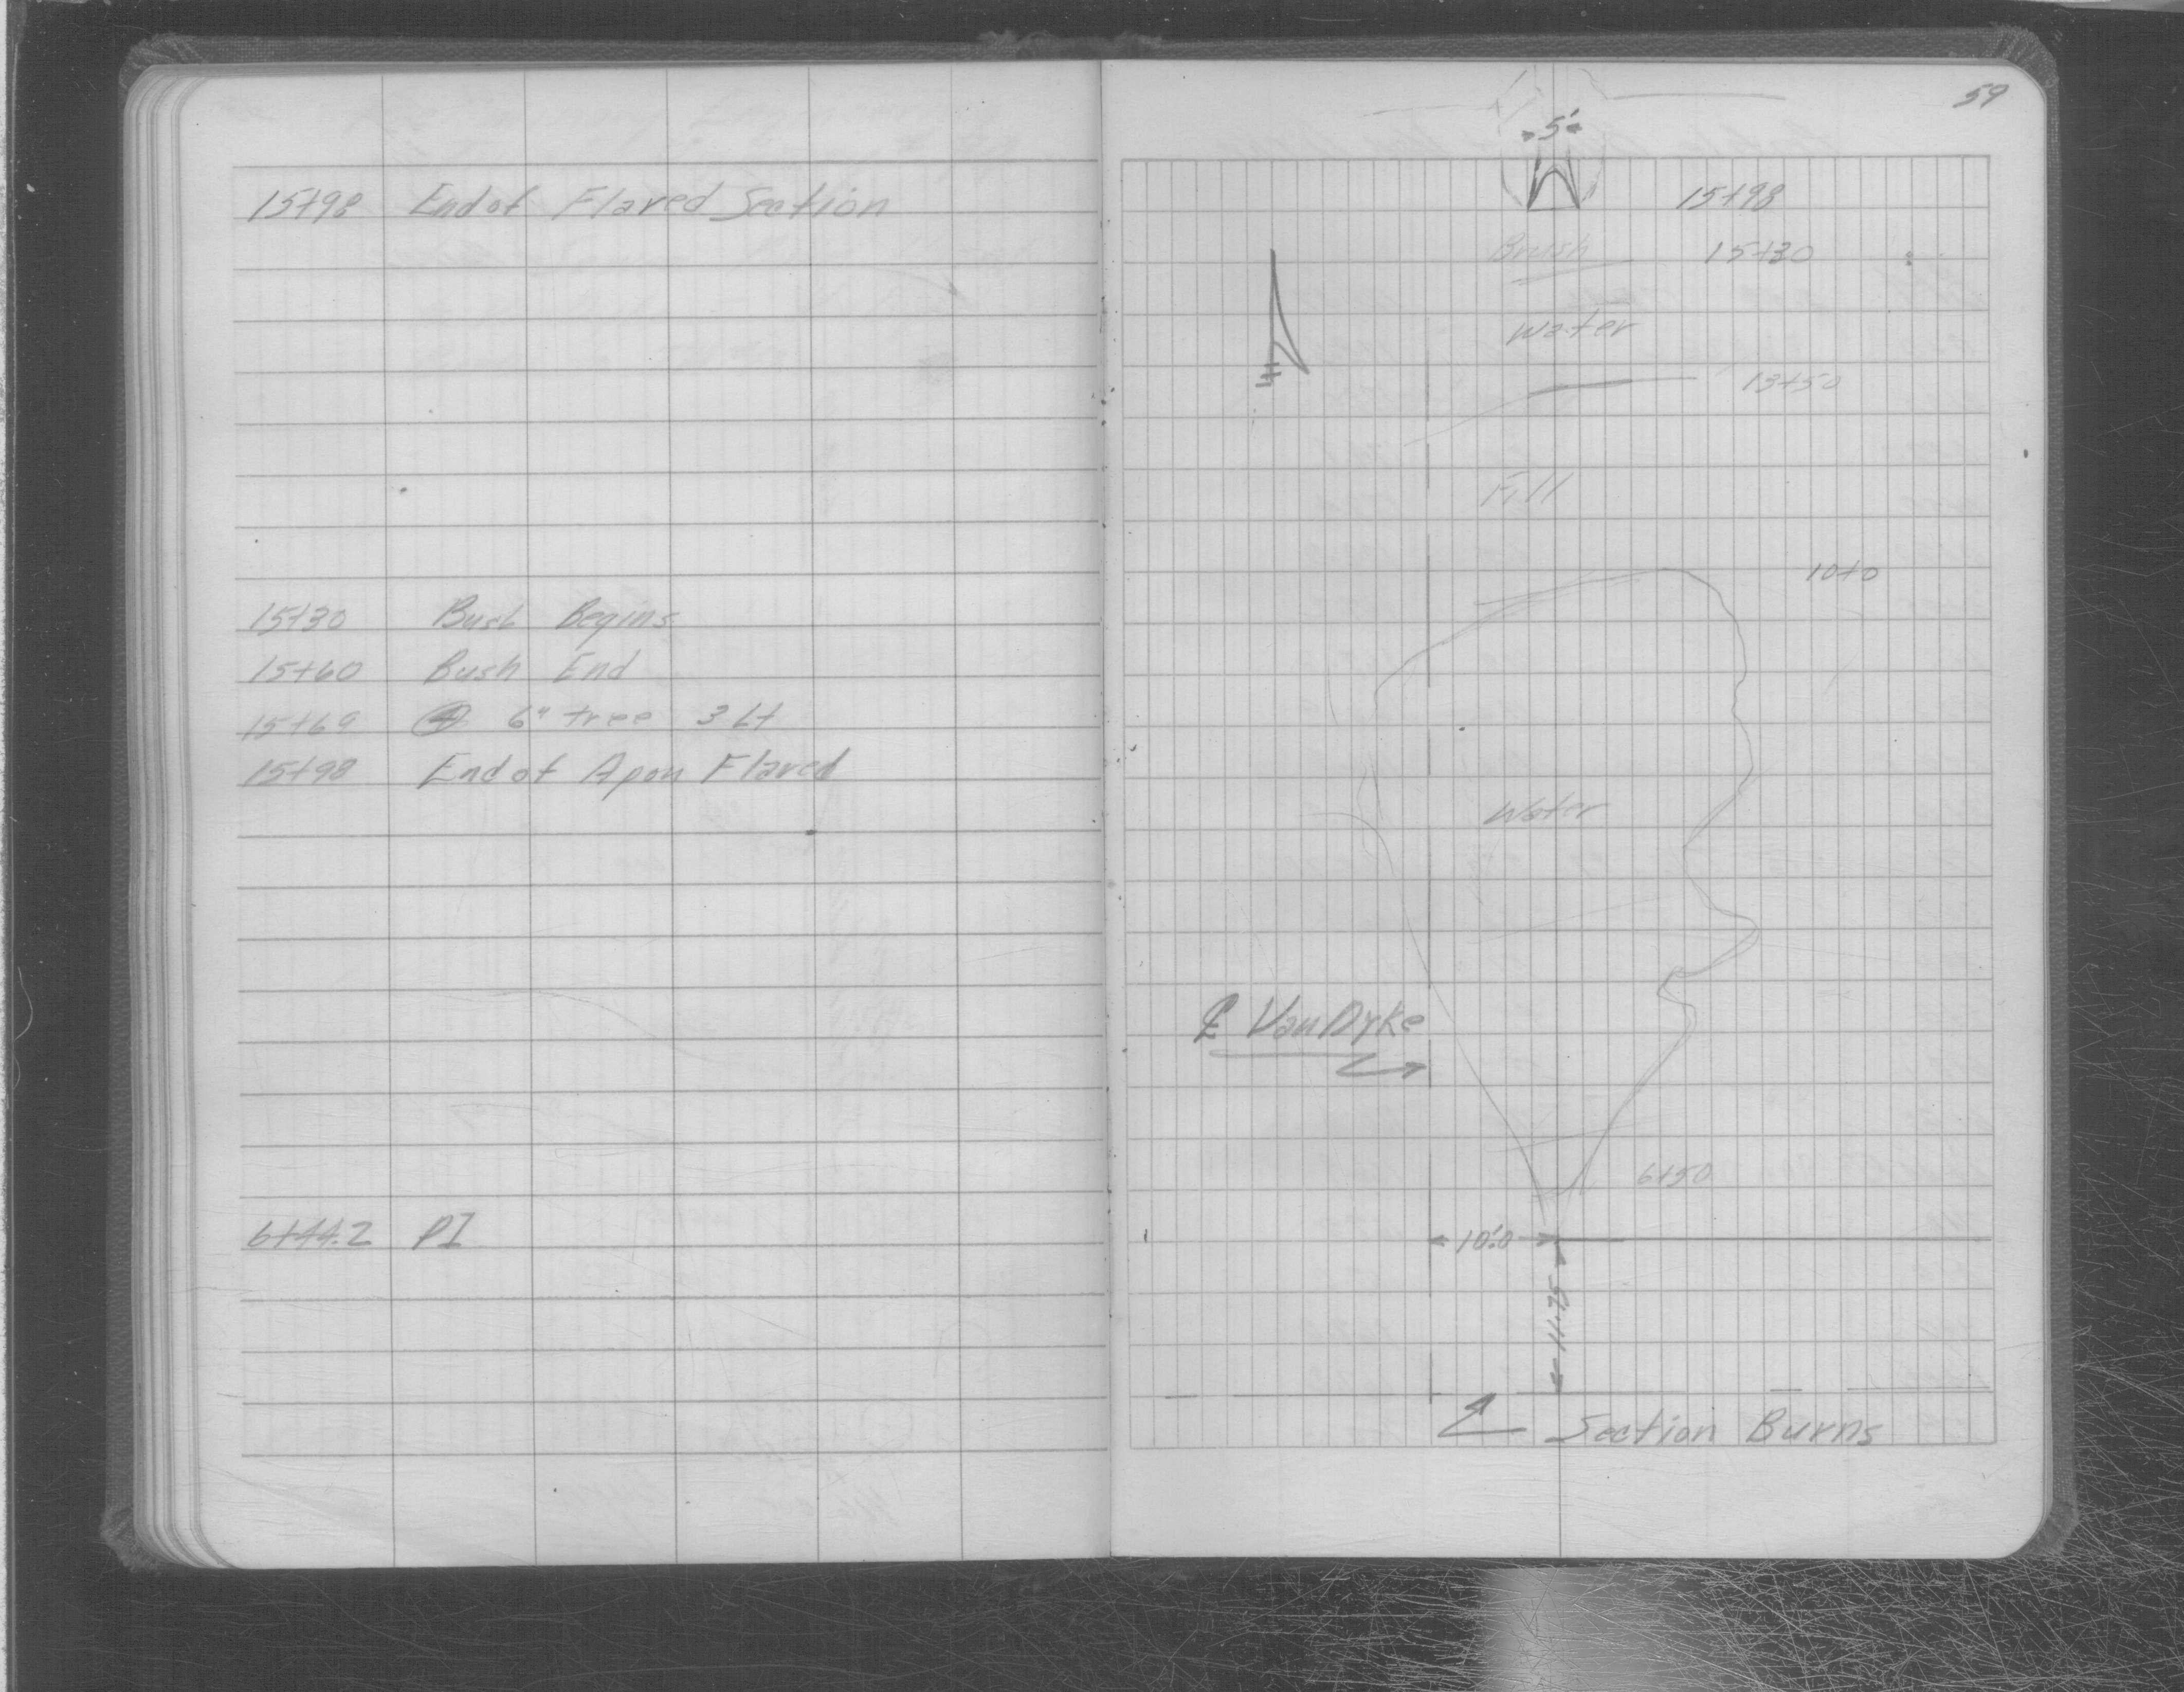 15+98 End of Flared Section
15+30 Bush Begins
15+60 Bush End
15+69 6" tree 3 Lt
15+98 End of Apon Flared
6+44.2 PI
59
5'
15+98
Brush 15+30
Water
13+50
Fill
10+0
Water
℄ VanDyke
6+50
10'.0
11.75
Section Burns